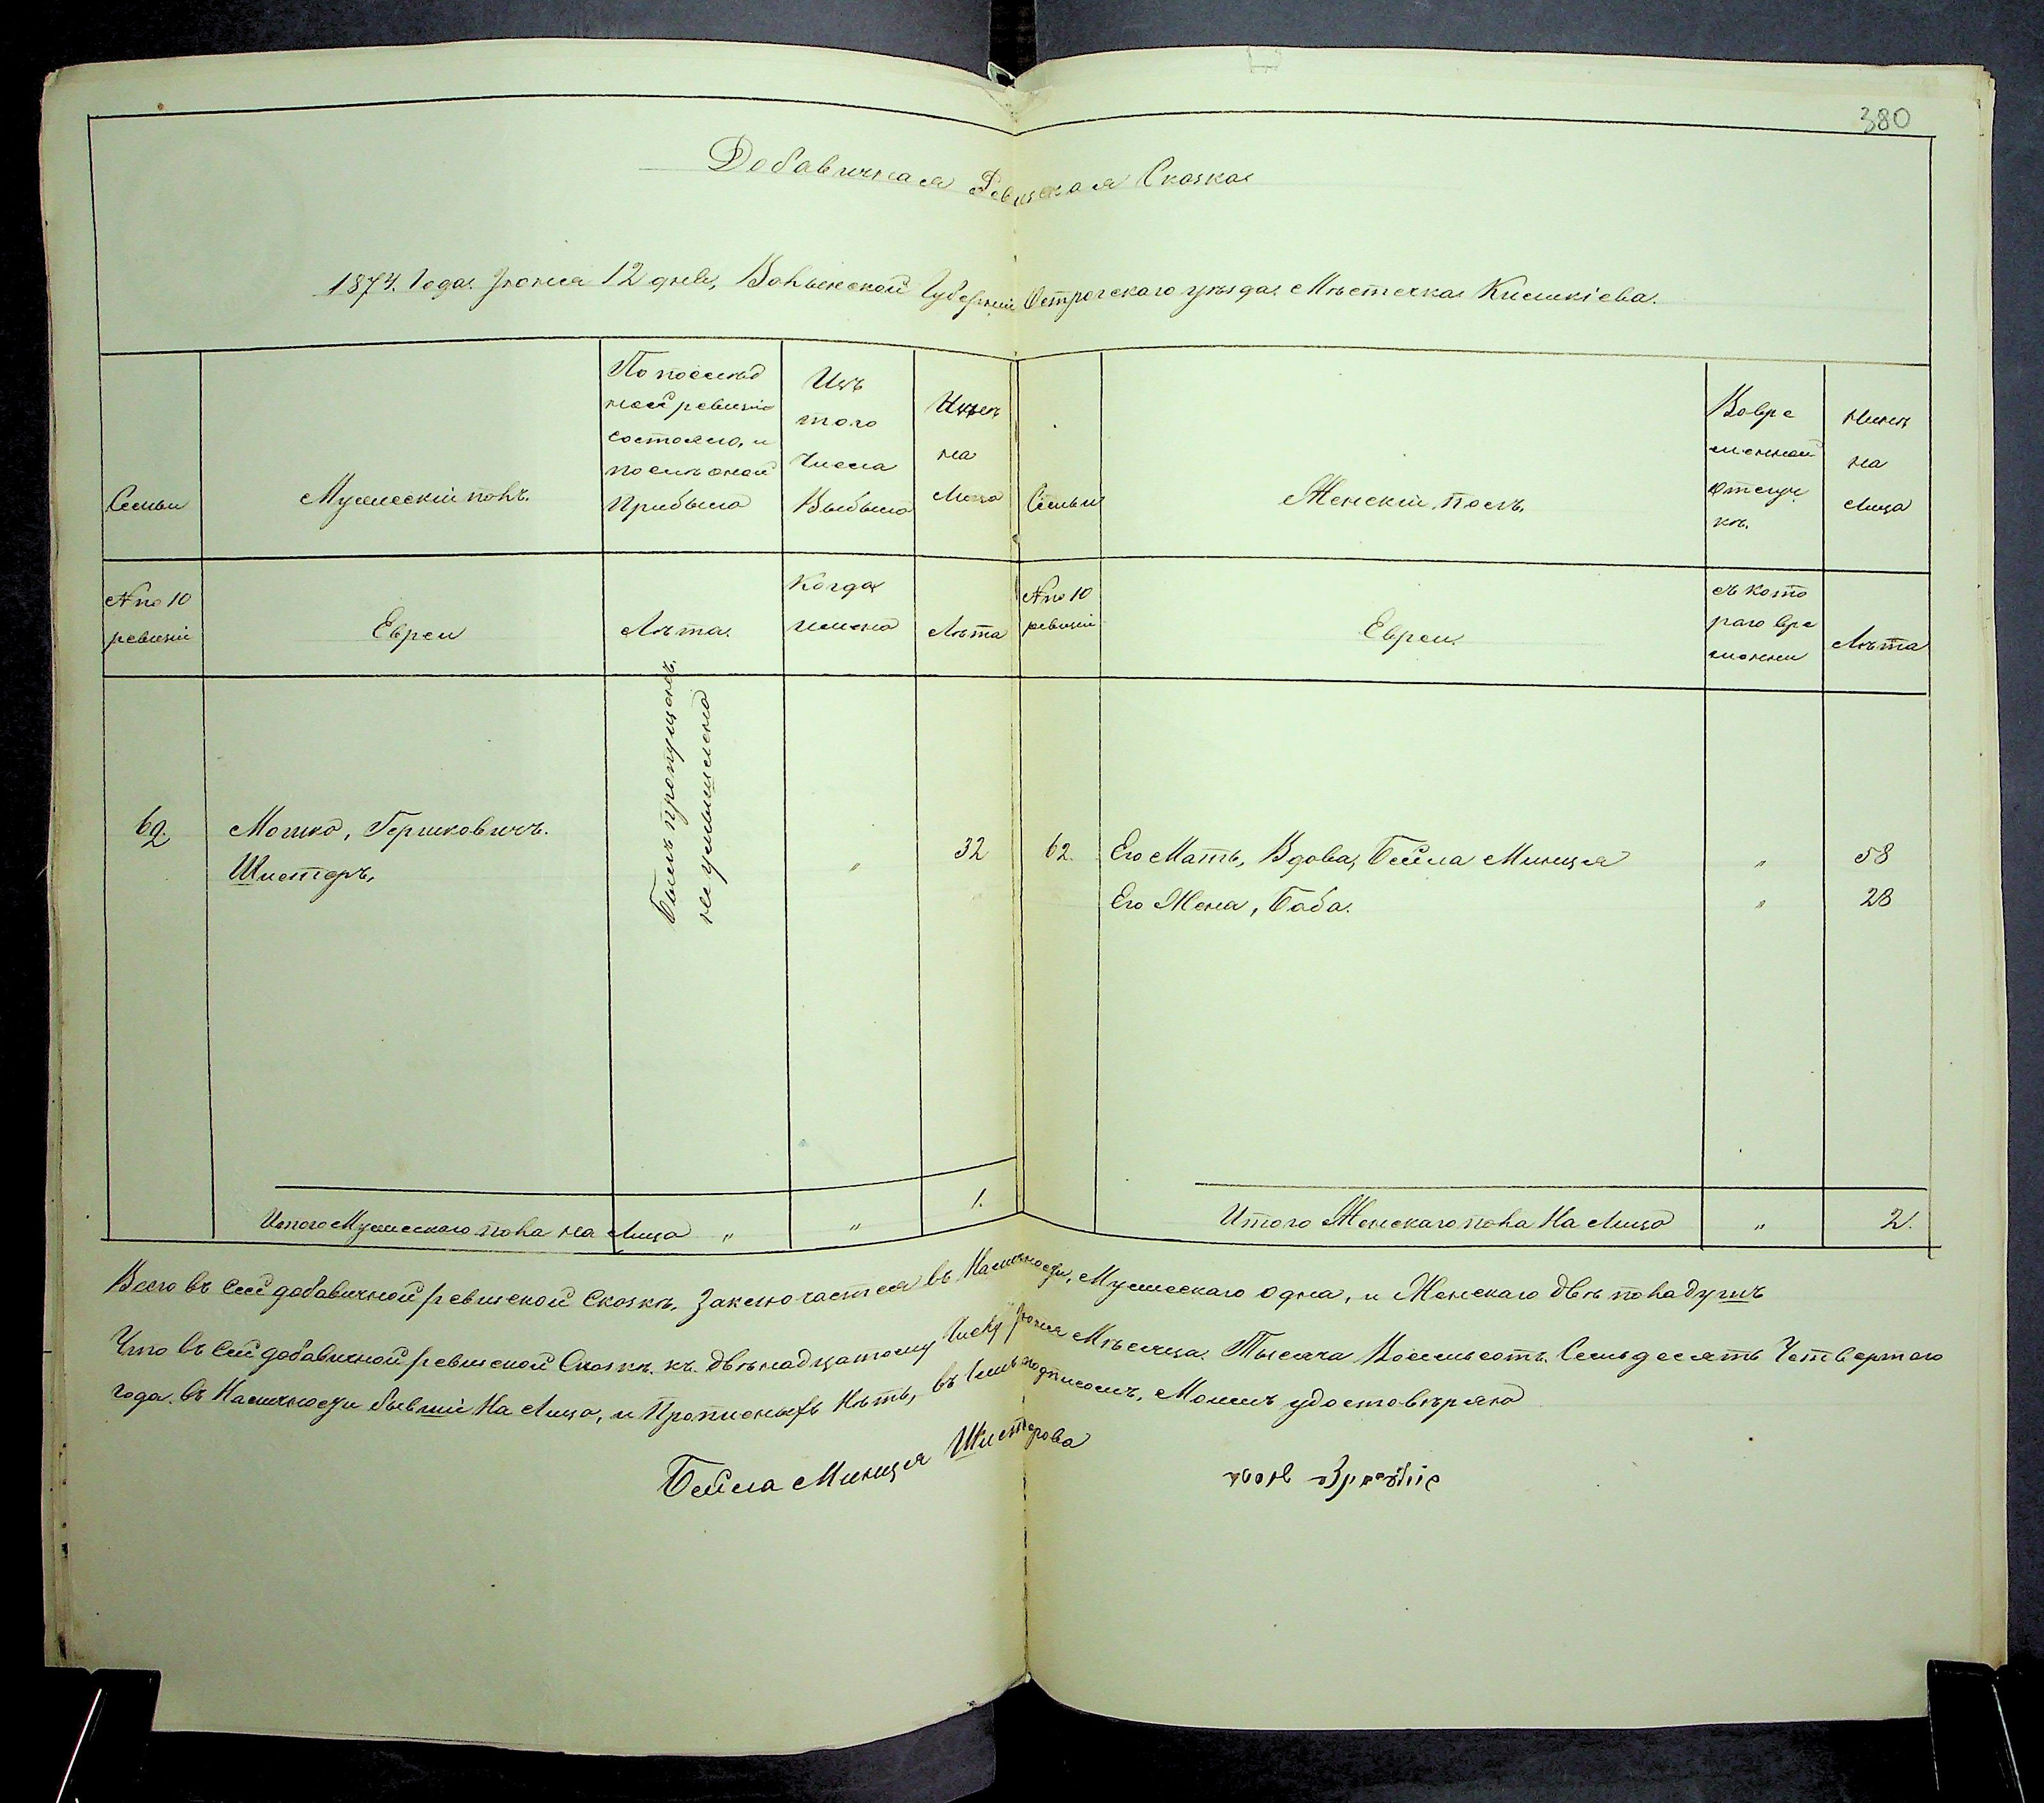 380
Добавичная Ревизская Сказка
1874. Года. Іюня 12 дня, Волынской Губерніи Острогскаго уѣзда. Мѣстечка Киликіева.
Семьи
Мужескій полъ.
По послѣд
ней ревизіи
состояло, и
послѣ оной
Прибыло
Изъ
того
Числа
Выбыло
Нынѣ
на
Лицо
Семьи
Женскій полъ.
Вовре
менной
Отлуч
кѣ.
Нынѣ
на
Лицо
№ по 10
ревизіи
Евреи
Лѣта.
Когда
именно
Лѣта
№ по 10
ревизіи
Евреи.
съ кото
раго вре
мянни
Лѣта
62.
Мошко, Гершковичъ.
Шистеръ,
Былъ пропущенъ.
неумышлено
"
32
62.
Его Мать, Вдова, Бейла Минця
"
58
Его Жена, Баба.
"
28
Итого Мужескаго пола на Лицо
"
"
1.
Итого Женскаго пола На Лицо
"
2.
Всего въ Сей добавичной ревизской Сказкѣ, заключается въ Наличности, Мужескаго одна, и Женскаго двѣ пола душъ
Что въ Сей добавичной ревизской Сказкѣ. къ. двѣнадцатому Числу Іюня Мѣсяца. Тысяча Восемьсотъ. Семьдесятъ Четвертаго
года. въ Наличности бывшіе На Лицо, и Прописныхъ Нѣтъ, въ томъ подписомъ, Моимъ удостовѣряю
Бейла Минця Шистерова